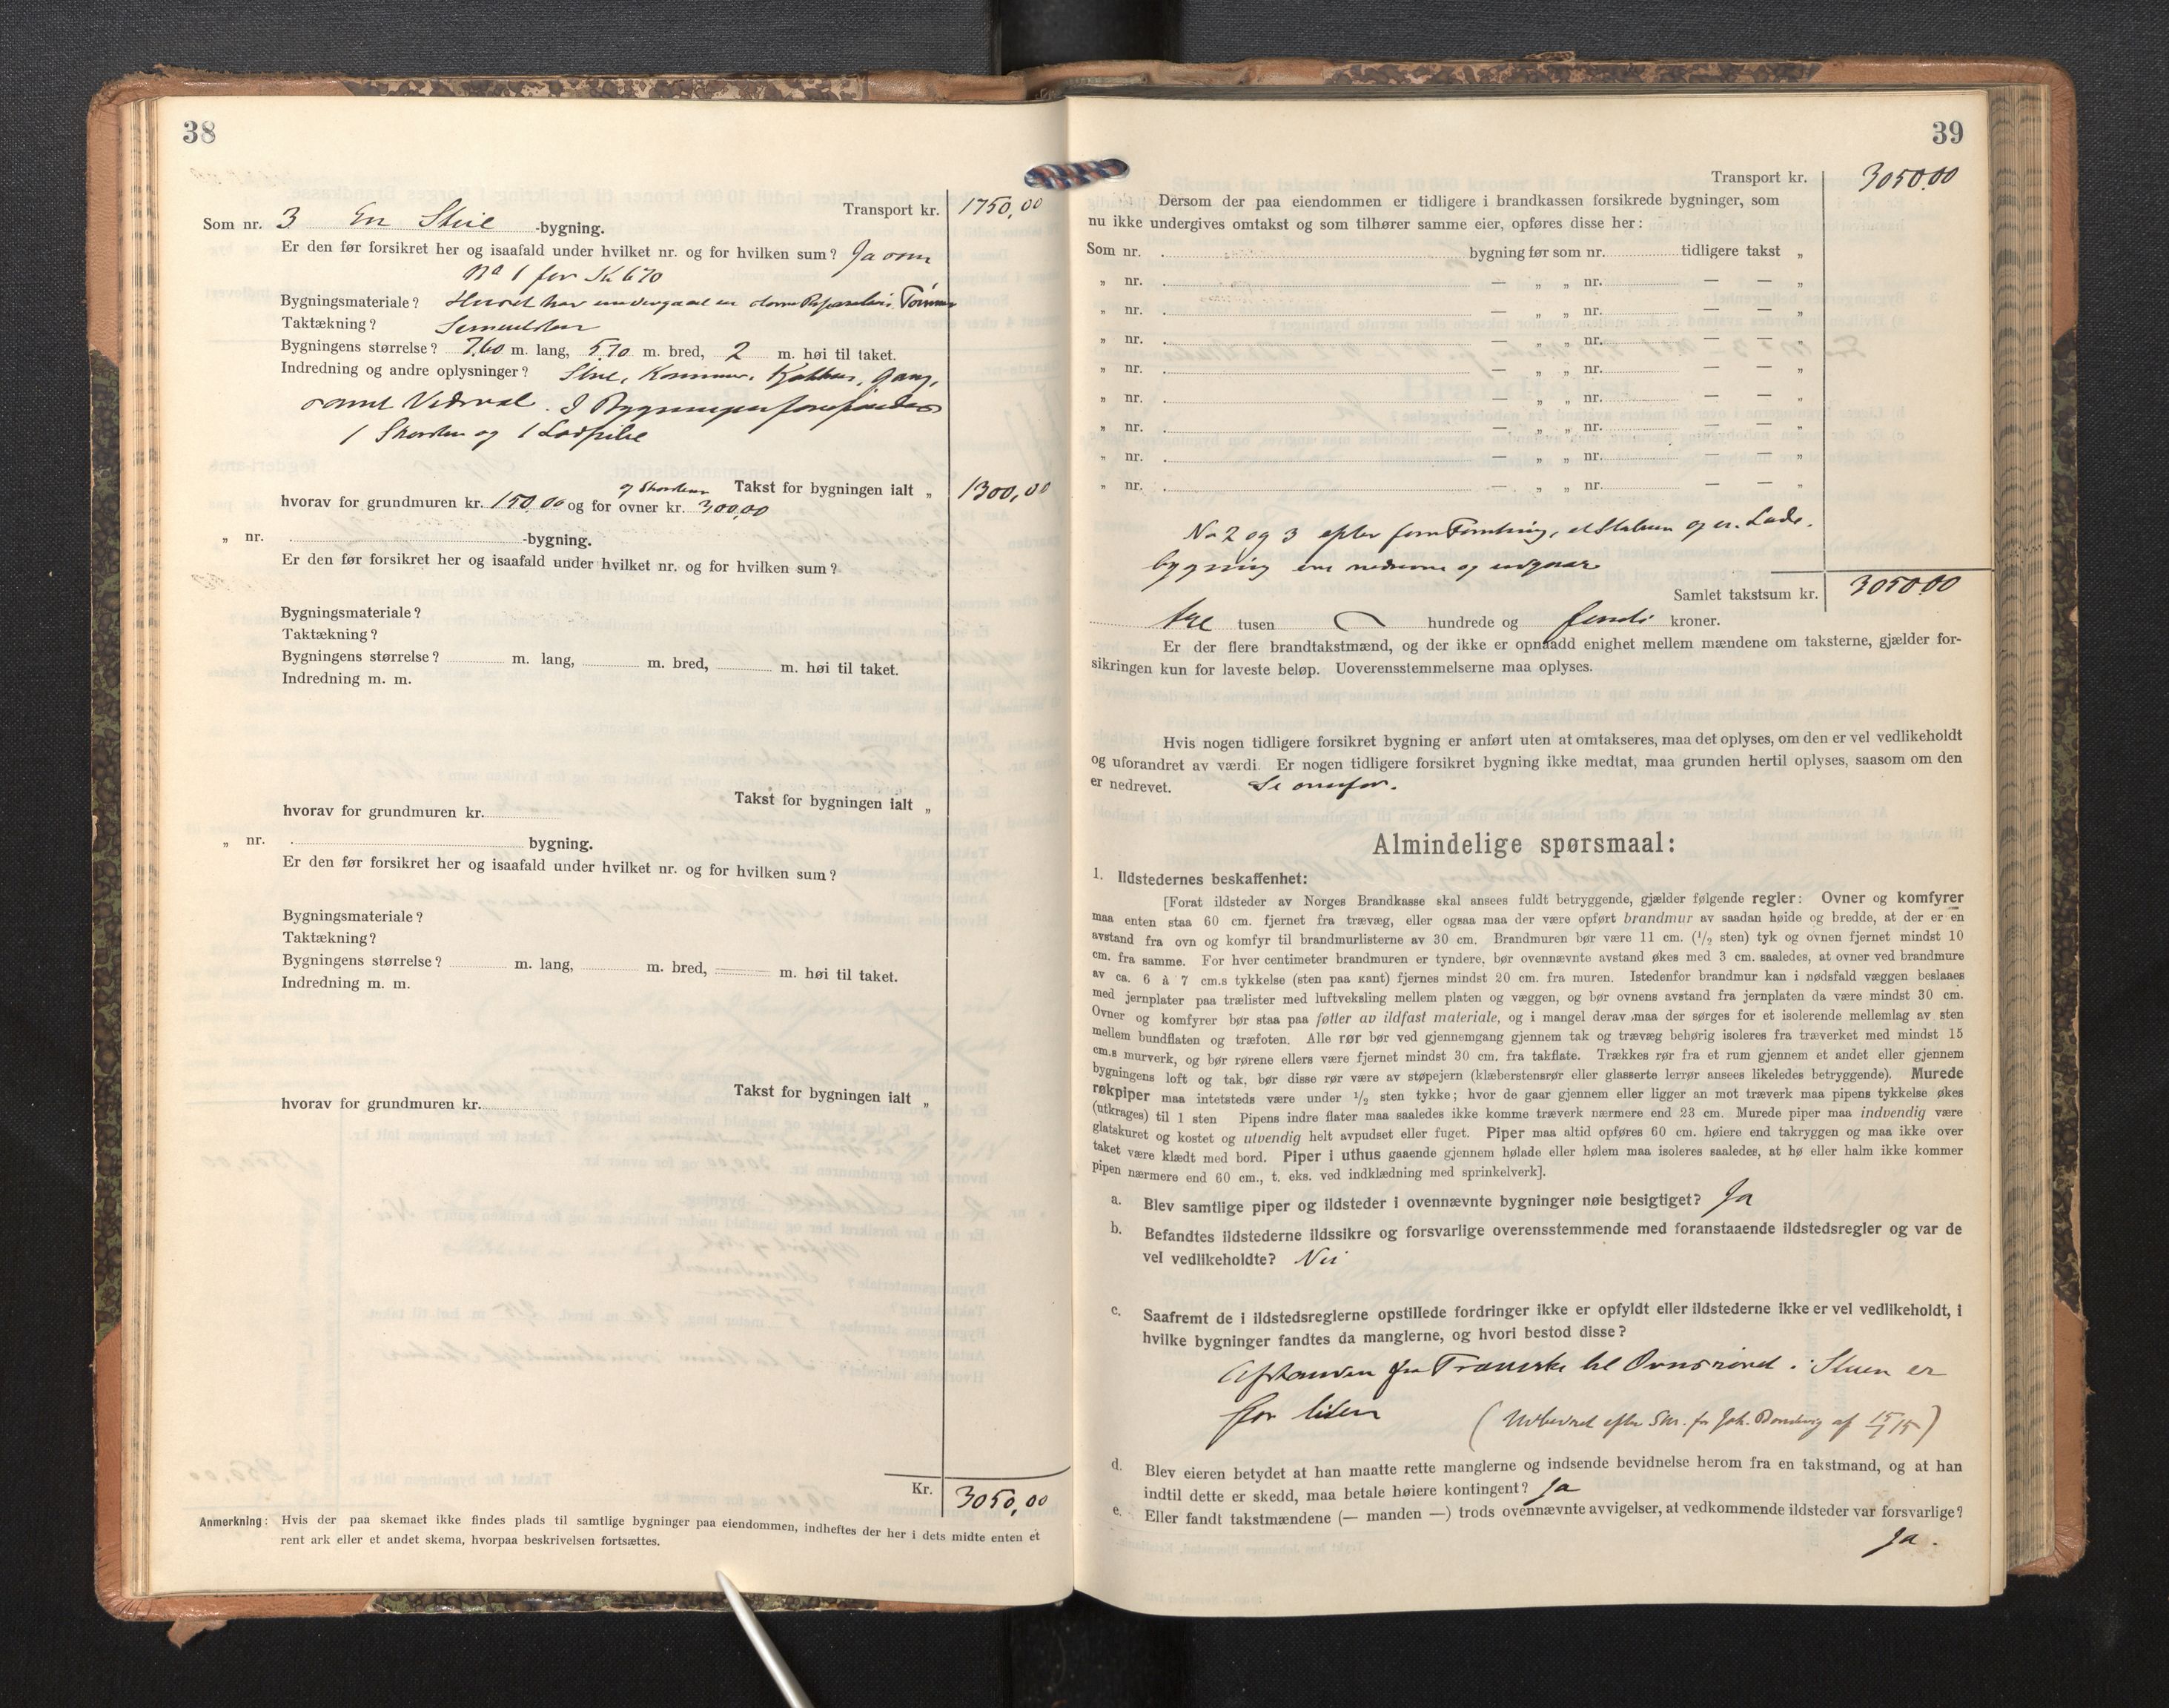 38
Transport kr. 1750,00
Som nr. 3 En Stue -bygning.
Er den før forsikret her og isaafald under hvilket nr. og for hvilken sum? Ja som
No 1 for Kr 670
Bygningsmateriale? Huset har undergaaet en Tømmer
Taktækning?
Bygningens størrelse? 7.60 m. lang, 5.70 m. bred, 2 m. høi til taket.
Indredning og andre oplysninger? Stue, Kammer, Kjøkken, Gang,
samt Vedsval. I Bygningen forefindes
1 Skorsten og 1 Ladpibe
Takst for bygningen ialt „ 1300,00
og Skorsten
hvorav for grundmuren kr. 150.00 og for ovner kr. 300.00
„ nr. -bygning.
Er den før forsikret her og isaafald under hvilket nr. og for hvilken sum?
Bygningsmateriale?
Taktækning?
Bygningens størrelse? m. lang, m. bred, m. høi til taket.
Indredning m. m.
Takst for bygningen ialt „
hvorav for grundmuren kr.
„ nr. bygning.
Er den før forsikret her og isaafald under hvilket nr. og for hvilken sum?
Bygningsmateriale?
Taktækning?
Bygningens størrelse? m. lang, m. bred, m. høi til taket.
Indredning m. m.
Takst for bygningen ialt „
hvorav for grundmuren kr.
Kr. 3050,00
Anmerkning: Hvis der paa skemaet ikke findes plads til samtlige bygninger paa eiendommen, indheftes der her i dets midte enten et
rent ark eller et andet skema, hvorpaa beskrivelsen fortsættes.
39
Transport kr. 3050.00
Dersom der paa eiendommen er tidligere i brandkassen forsikrede bygninger, som
nu ikke undergives omtakst og som tilhører samme eier, opføres disse her:
Som nr. bygning før som nr. tidligere takst „
„ nr. — „ „ nr. — — „
„ nr. — „ „ nr. — — „
„ nr. — „ „ nr. — — „
„ nr. — „ „ nr. — — „
„ nr. — „ „ nr. — — „
„ nr. — „ „ nr. — — „
„ nr. — „ „ nr. — — „
„ nr. — „ „ nr. — — „
No 2 og 3 efter forr Forretning, et Stabur og en Lade-
bygning ere nedrevne og udgaar
Samlet takstsum kr. 3050.00
tre tusen hundrede og femti kroner.
Er der flere brandtakstmænd, og der ikke er opnaadd enighet mellem mændene om taksterne, gjælder for-
sikringen kun for laveste beløp. Uoverensstemmelserne maa oplyses.
Hvis nogen tidligere forsikret bygning er anført uten at omtakseres, maa det oplyses, om den er vel vedlikeholdt
og uforandret av værdi. Er nogen tidligere forsikret bygning ikke medtat, maa grunden hertil oplyses, saasom om den
er nedrevet. Se ovenfor.
Almindelige spørsmaal:
1. Ildstedernes beskaffenhet:
[Forat ildsteder av Norges Brandkasse skal ansees fuldt betryggende, gjælder følgende regler: Ovner og komfyrer
maa enten staa 60 cm. fjernet fra trævæg, eller ogsaa maa der være opført brandmur av saadan høide og bredde, at der er en
avstand fra ovn og komfyr til brandmurlisterne av 30 cm. Brandmuren bør være 11 cm. (1/2 sten) tyk og ovnen fjernet mindst 10
cm. fra samme. For hver centimeter brandmuren er tyndere, bør ovennævnte avstand økes med 3 cm. saaledes, at ovner ved brandmure
av ca. 6 à 7 cm.s tykkelse (sten paa kant) fjernes mindst 20 cm. fra muren. Istedenfor brandmur kan i nødsfald væggen beslaaes
med jernplater paa trælister med luftveksling mellem platen og væggen, og bør ovnens avstand fra jernplaten da være mindst 30 cm.
Ovner og komfyrer bør staa paa føtter av ildfast materiale, og i mangel derav maa der sørges for et isolerende mellemlag av sten
mellem bundflaten og træfoten. Alle rør bør ved gjennemgang gjennem tak og trævæg behørig isoleres fra træverket med mindst 15
cm.s murverk, og bør rørene ellers være fjernet mindst 30 cm. fra takflate. Trækkes rør fra et rum gjennem et andet eller gjennem
bygningens loft og tak, bør disse rør være av støpejern (klæberstensrør eller glasserte lerrør ansees likeledes betryggende). Murede
røkpiper maa intetsteds være under 1/2 sten tykke; hvor de gaar gjennem eller ligger an mot træverk maa pipens tykkelse økes
(utkrages) til 1 sten Pipens indre flater maa saaledes ikke komme træverk nærmere end 23 cm. Murede piper maa indvendig være
glatskuret og kostet og utvendig helt avpudset eller fuget. Piper maa altid opføres 60 cm. høiere end takryggen og maa ikke over
taket være klædt med bord. Piper i uthus gaaende gjennem hølade eller hølem maa isoleres saaledes, at hø eller halm ikke kommer
pipen nærmere end 60 cm., t. eks. ved indklædning med sprinkelverk].
a. Blev samtlige piper og ildsteder i ovennævnte bygninger nøie besigtiget? Ja
b. Befandtes ildstederne ildssikre og forsvarlige overensstemmende med foranstaaende ildstedsregler og var de
vel vedlikeholdte? Nei
c. Saafremt de i ildstedsreglerne opstillede fordringer ikke er opfyldt eller ildstederne ikke er vel vedlikeholdt, i
hvilke bygninger fandtes da manglerne, og hvori bestod disse?
Afstanden fra Træverket til Ovnsrøret i Stuen er
for liden (Utbedret efter Skr. fra Joh. af 15/1 15)
d. Blev eieren betydet at han maatte rette manglerne og indsende bevidnelse herom fra en takstmand, og at han
indtil dette er skedd, maa betale høiere kontingent? Ja
e. Eller fandt takstmændene (— manden —) trods ovennævnte avvigelser, at vedkommende ildsteder var forsvarlige?
Ja.